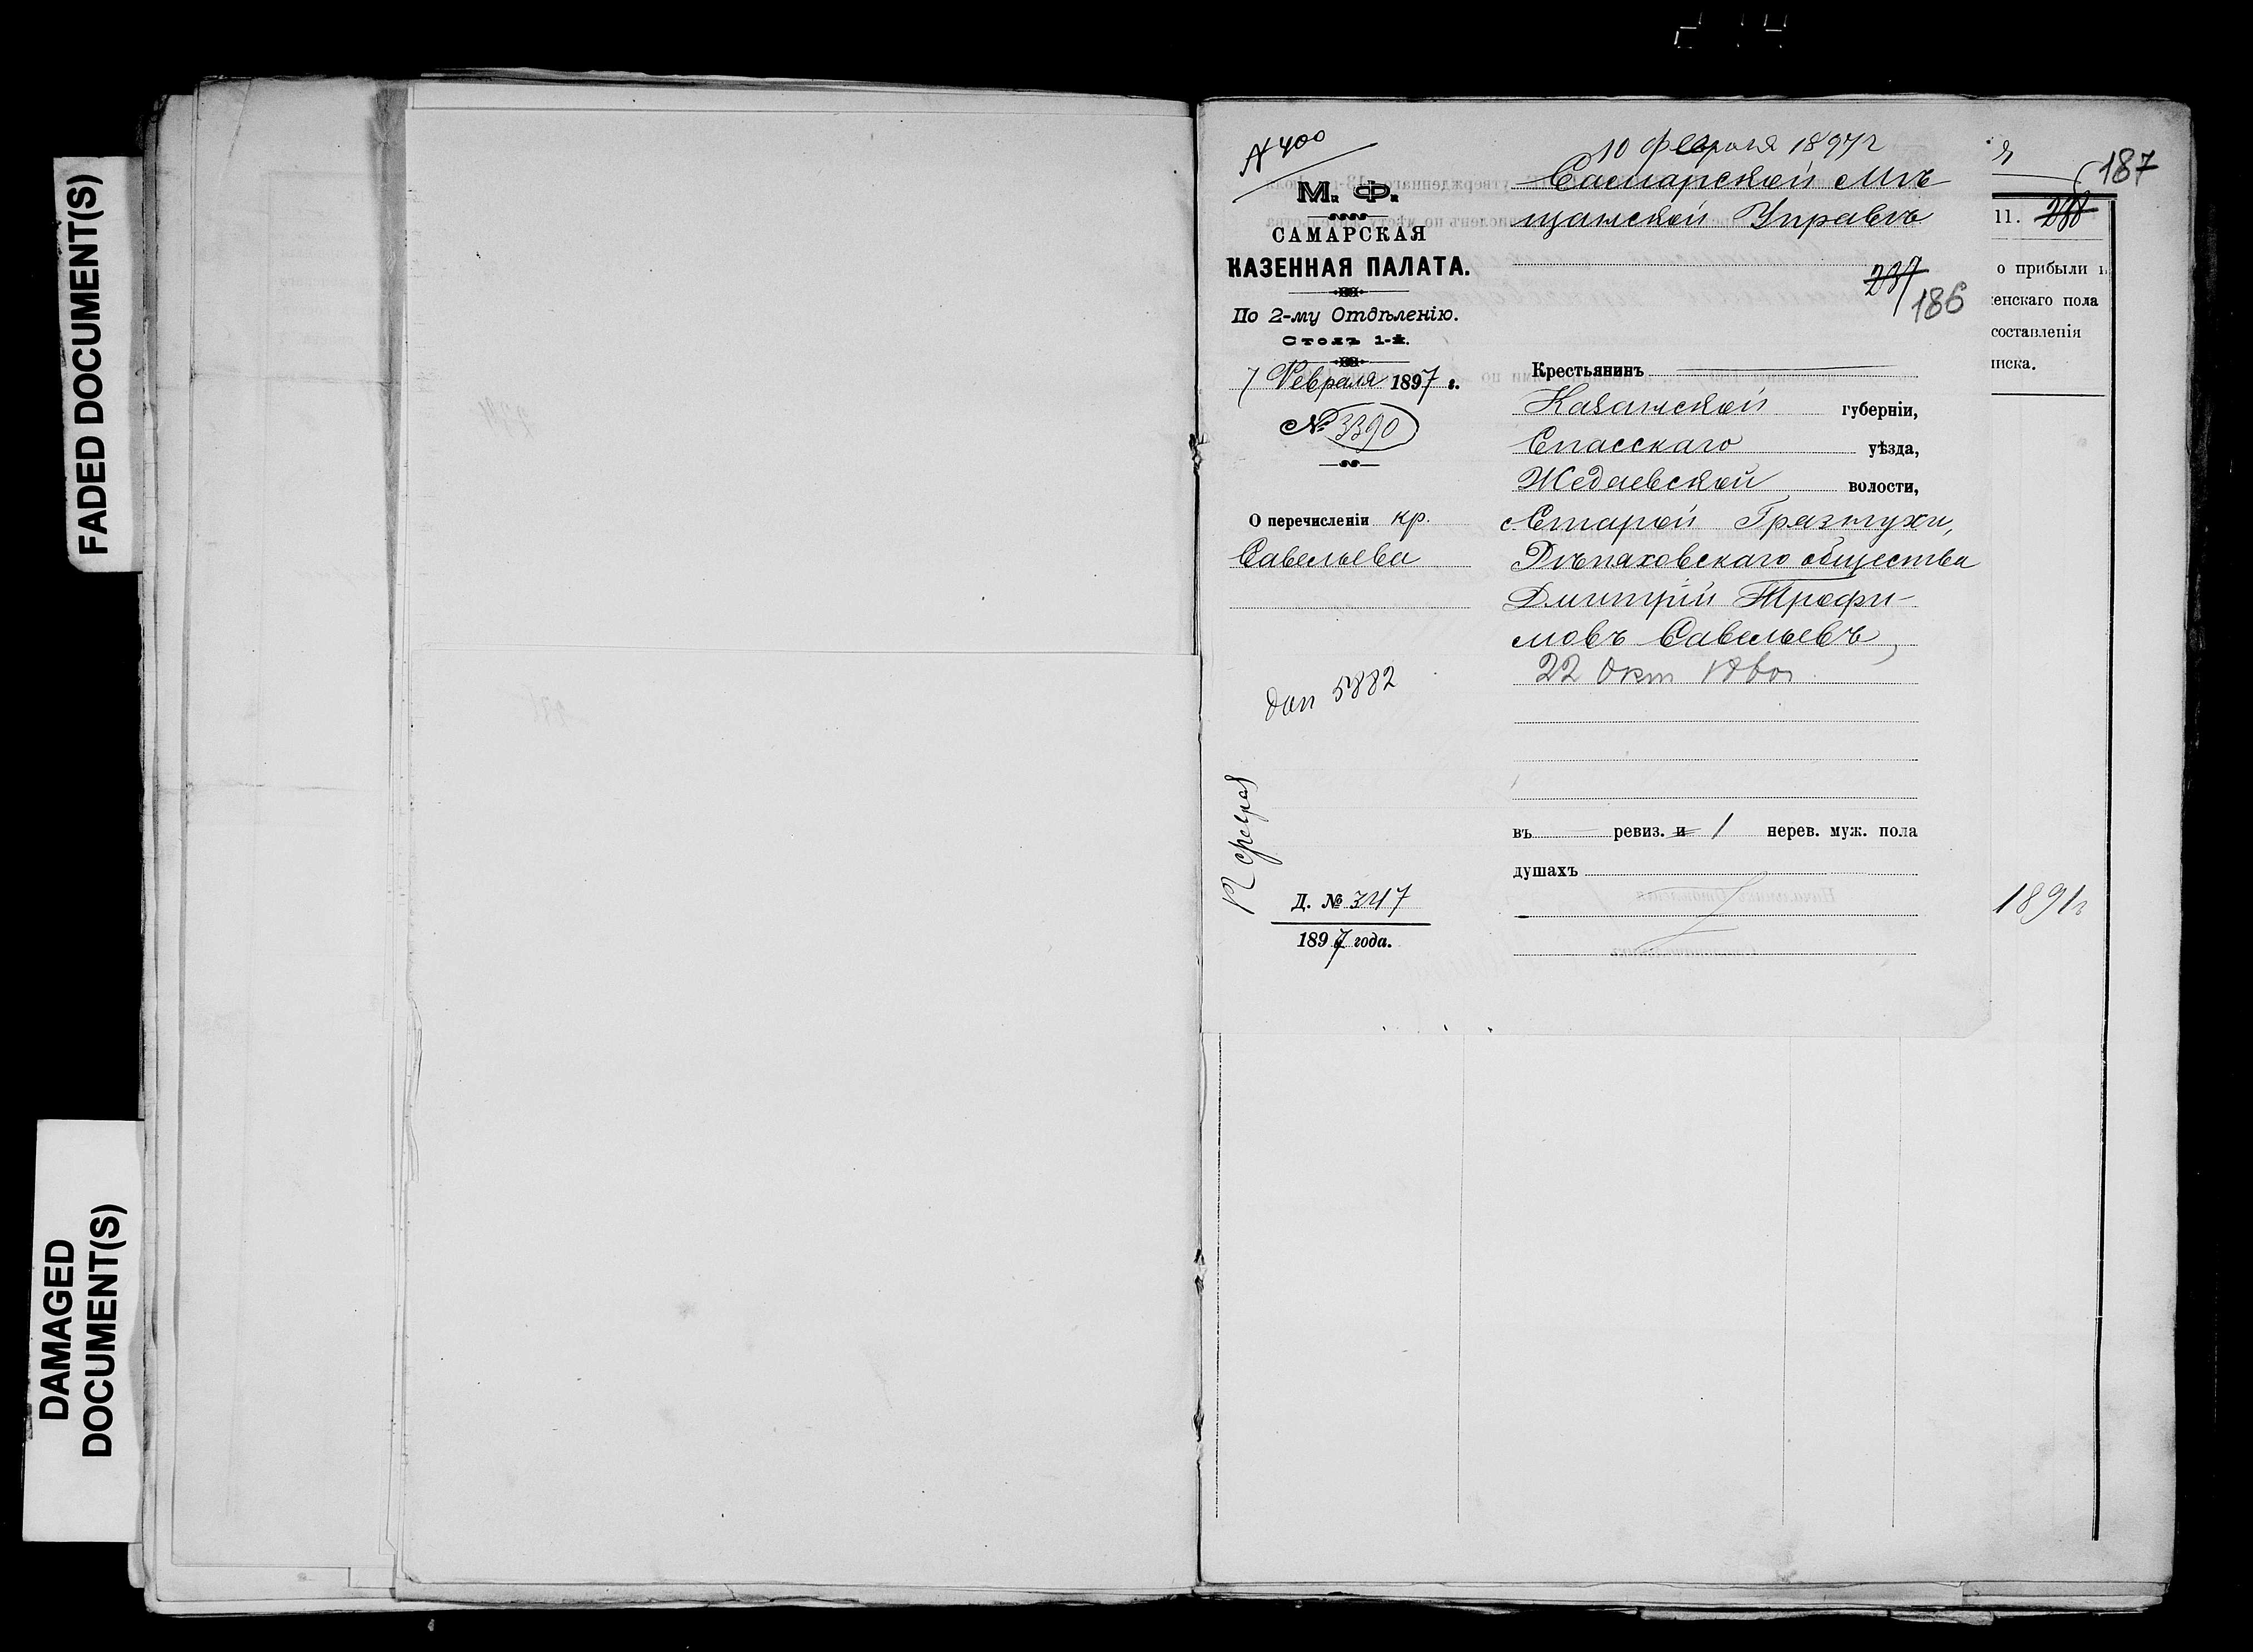 FADED DOCUMENT(S)
DAMAGED
DOCUMENT(S)
№ 400
М. Ф.
САМАРСКАЯ
КАЗЕННАЯ ПАЛАТА.
По 2-му Отдѣленію.
Столъ 1-й.
7 Февраля 1897 г.
№ 3390
О перечисленіи кр.
Савельева
5882
12 февраля
Д. № 347
1897 года.
10 февраля 1897 г
Самарской Мѣ
щанской Управѣ
237
186
Крестьянинъ
Казанской губерніи,
Спасскаго уѣзда,
Жедаевской волости,
с. Старой Грязнухи,
общества
Дмитрій Трофи-
мовъ Савельевъ,
22 Окт
въ ревиз. и 1 нерев. муж. пола
душахъ
187
11. 238
о прибыли и
енскаго пола
составленія
иска.
1891 г